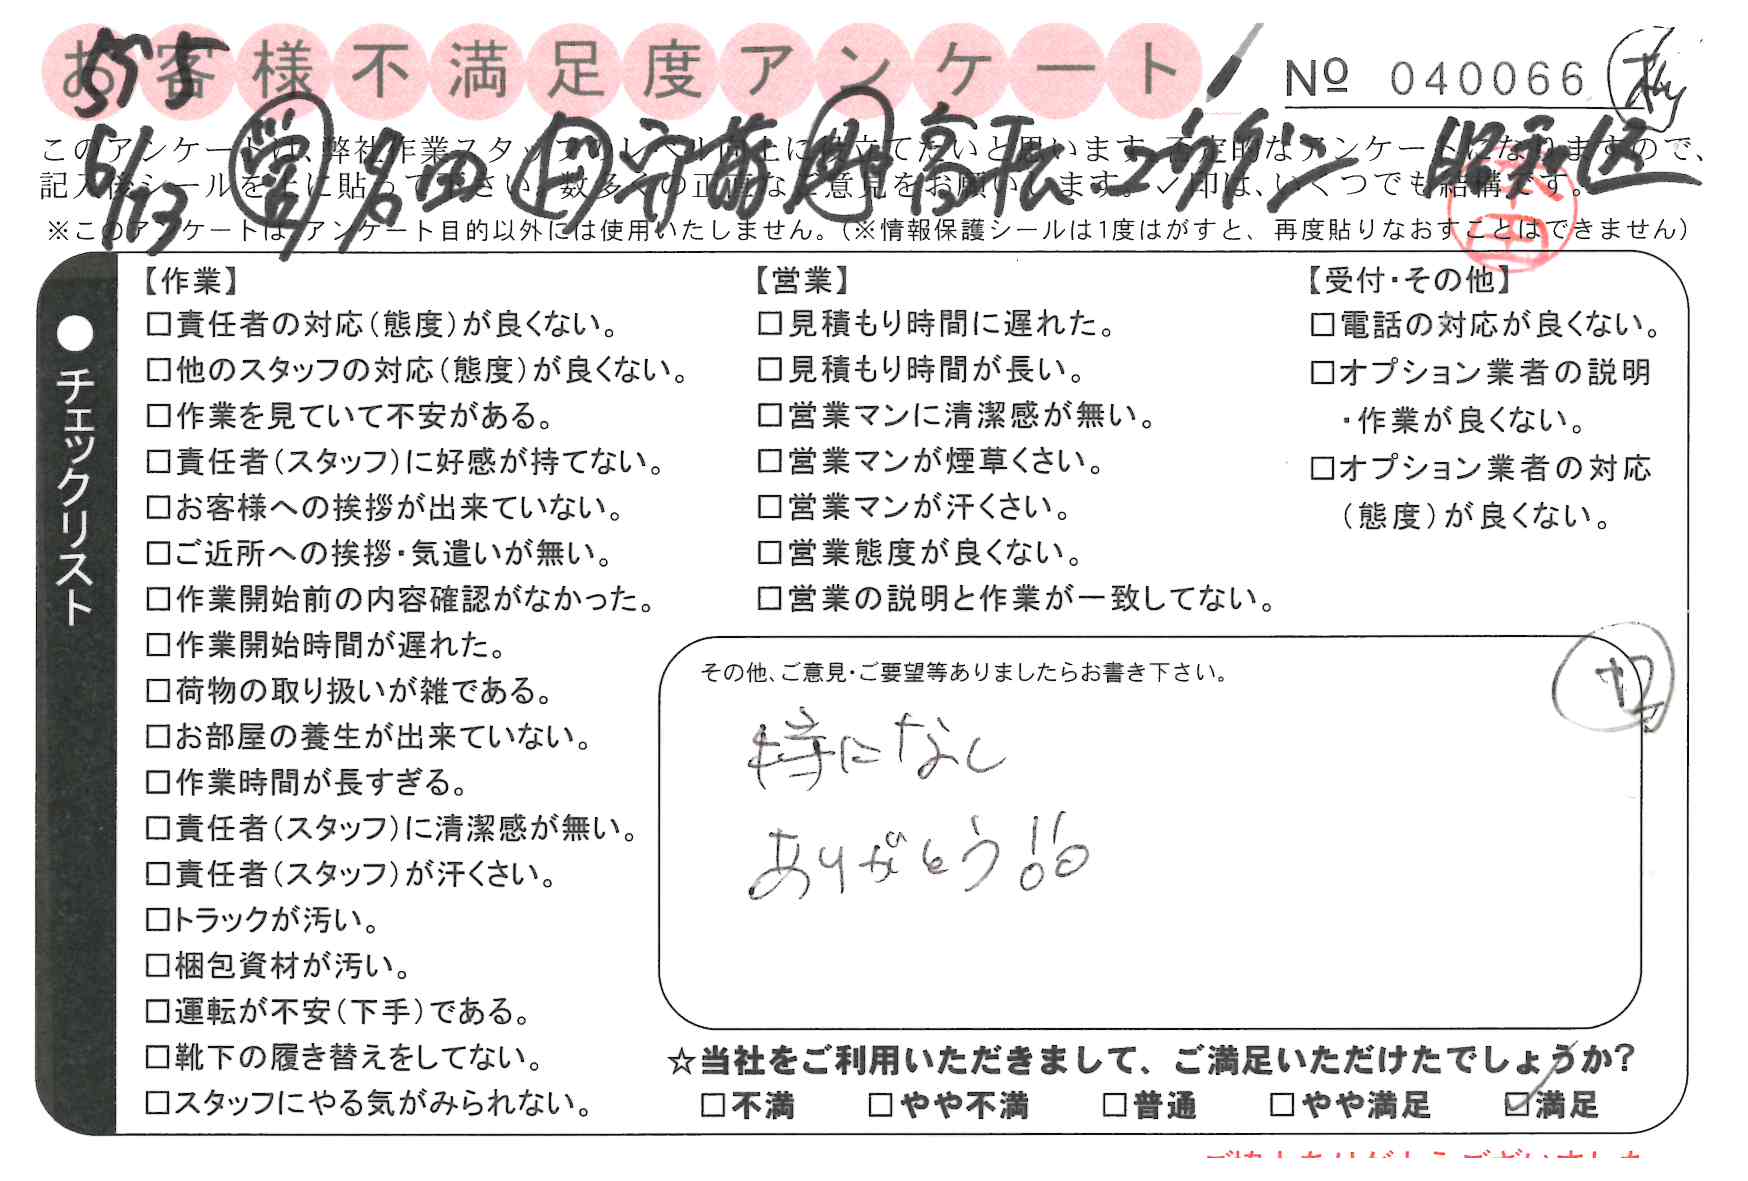 お客様不満足度アンケート
№ 040066
575
6/13 営 名田 上 守前 高松 コウケン 昭和区
このアンケートは、弊社作業スタッフのレベル向上に役立てたいと思います。否定的なアンケートになりますので、
記入後シールを上に貼って下さい。数多くの正直なご意見をお願いします。✓印は、いくつでも結構です。
※このアンケートは、アンケート目的以外には使用いたしません。(※情報保護シールは1度はがすと、再度貼りなおすことはできません)
●チェックリスト
【作業】
□責任者の対応(態度)が良くない。
□他のスタッフの対応(態度)が良くない。
□作業を見ていて不安がある。
□責任者(スタッフ)に好感が持てない。
□お客様への挨拶が出来ていない。
□ご近所への挨拶・気遣いが無い。
□作業開始前の内容確認がなかった。
□作業開始時間が遅れた。
□荷物の取り扱いが雑である。
□お部屋の養生が出来ていない。
□作業時間が長すぎる。
□責任者(スタッフ)に清潔感が無い。
□責任者(スタッフ)が汗くさい。
□トラックが汚い。
□梱包資材が汚い。
□運転が不安(下手)である。
□靴下の履き替えをしてない。
□スタッフにやる気がみられない。
【営業】
□見積もり時間に遅れた。
□見積もり時間が長い。
□営業マンに清潔感が無い。
□営業マンが煙草くさい。
□営業マンが汗くさい。
□営業態度が良くない。
□営業の説明と作業が一致してない。
【受付・その他】
□電話の対応が良くない。
□オプション業者の説明
・作業が良くない。
□オプション業者の対応
(態度)が良くない。
その他、ご意見・ご要望等ありましたらお書き下さい。
特になし
ありがとう!!
☆当社をご利用いただきまして、ご満足いただけたでしょうか?
□不満 □やや不満 □普通 □やや満足 ☑満足
ご協力ありがとうございました